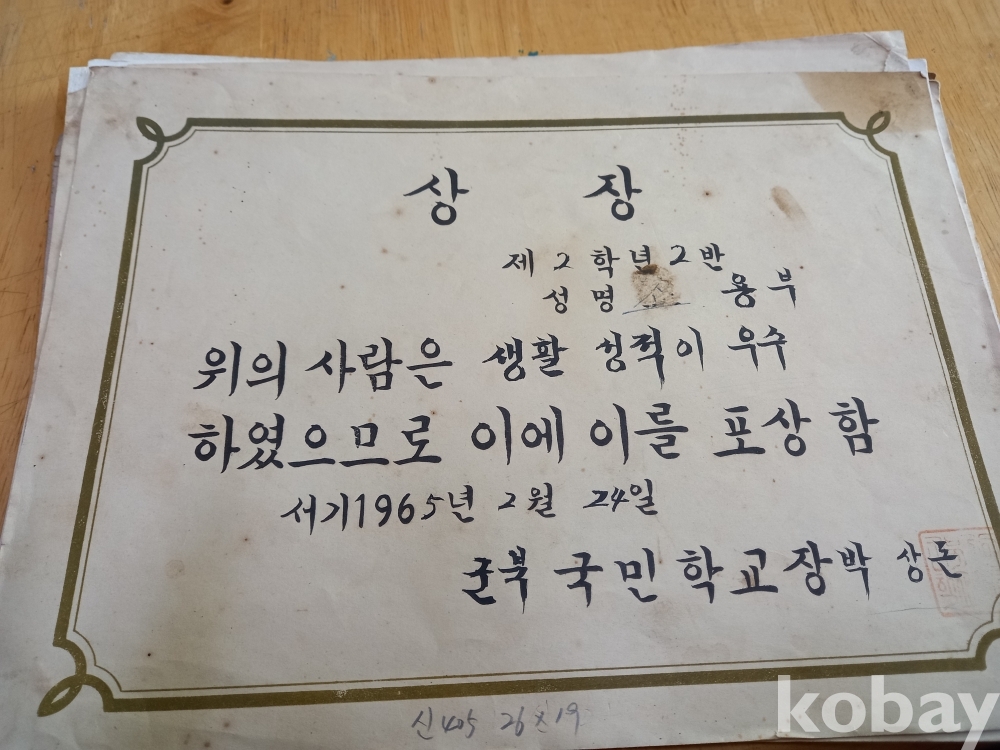 상 장
제 2 학년 2 반
성명 용부
위의 사람은 생활 성적이 우수
하였으므로 이에 이를 포상 함
서기1965년 2월 24일
군북 국민학교장 박상돈
신405 26x19
kobay